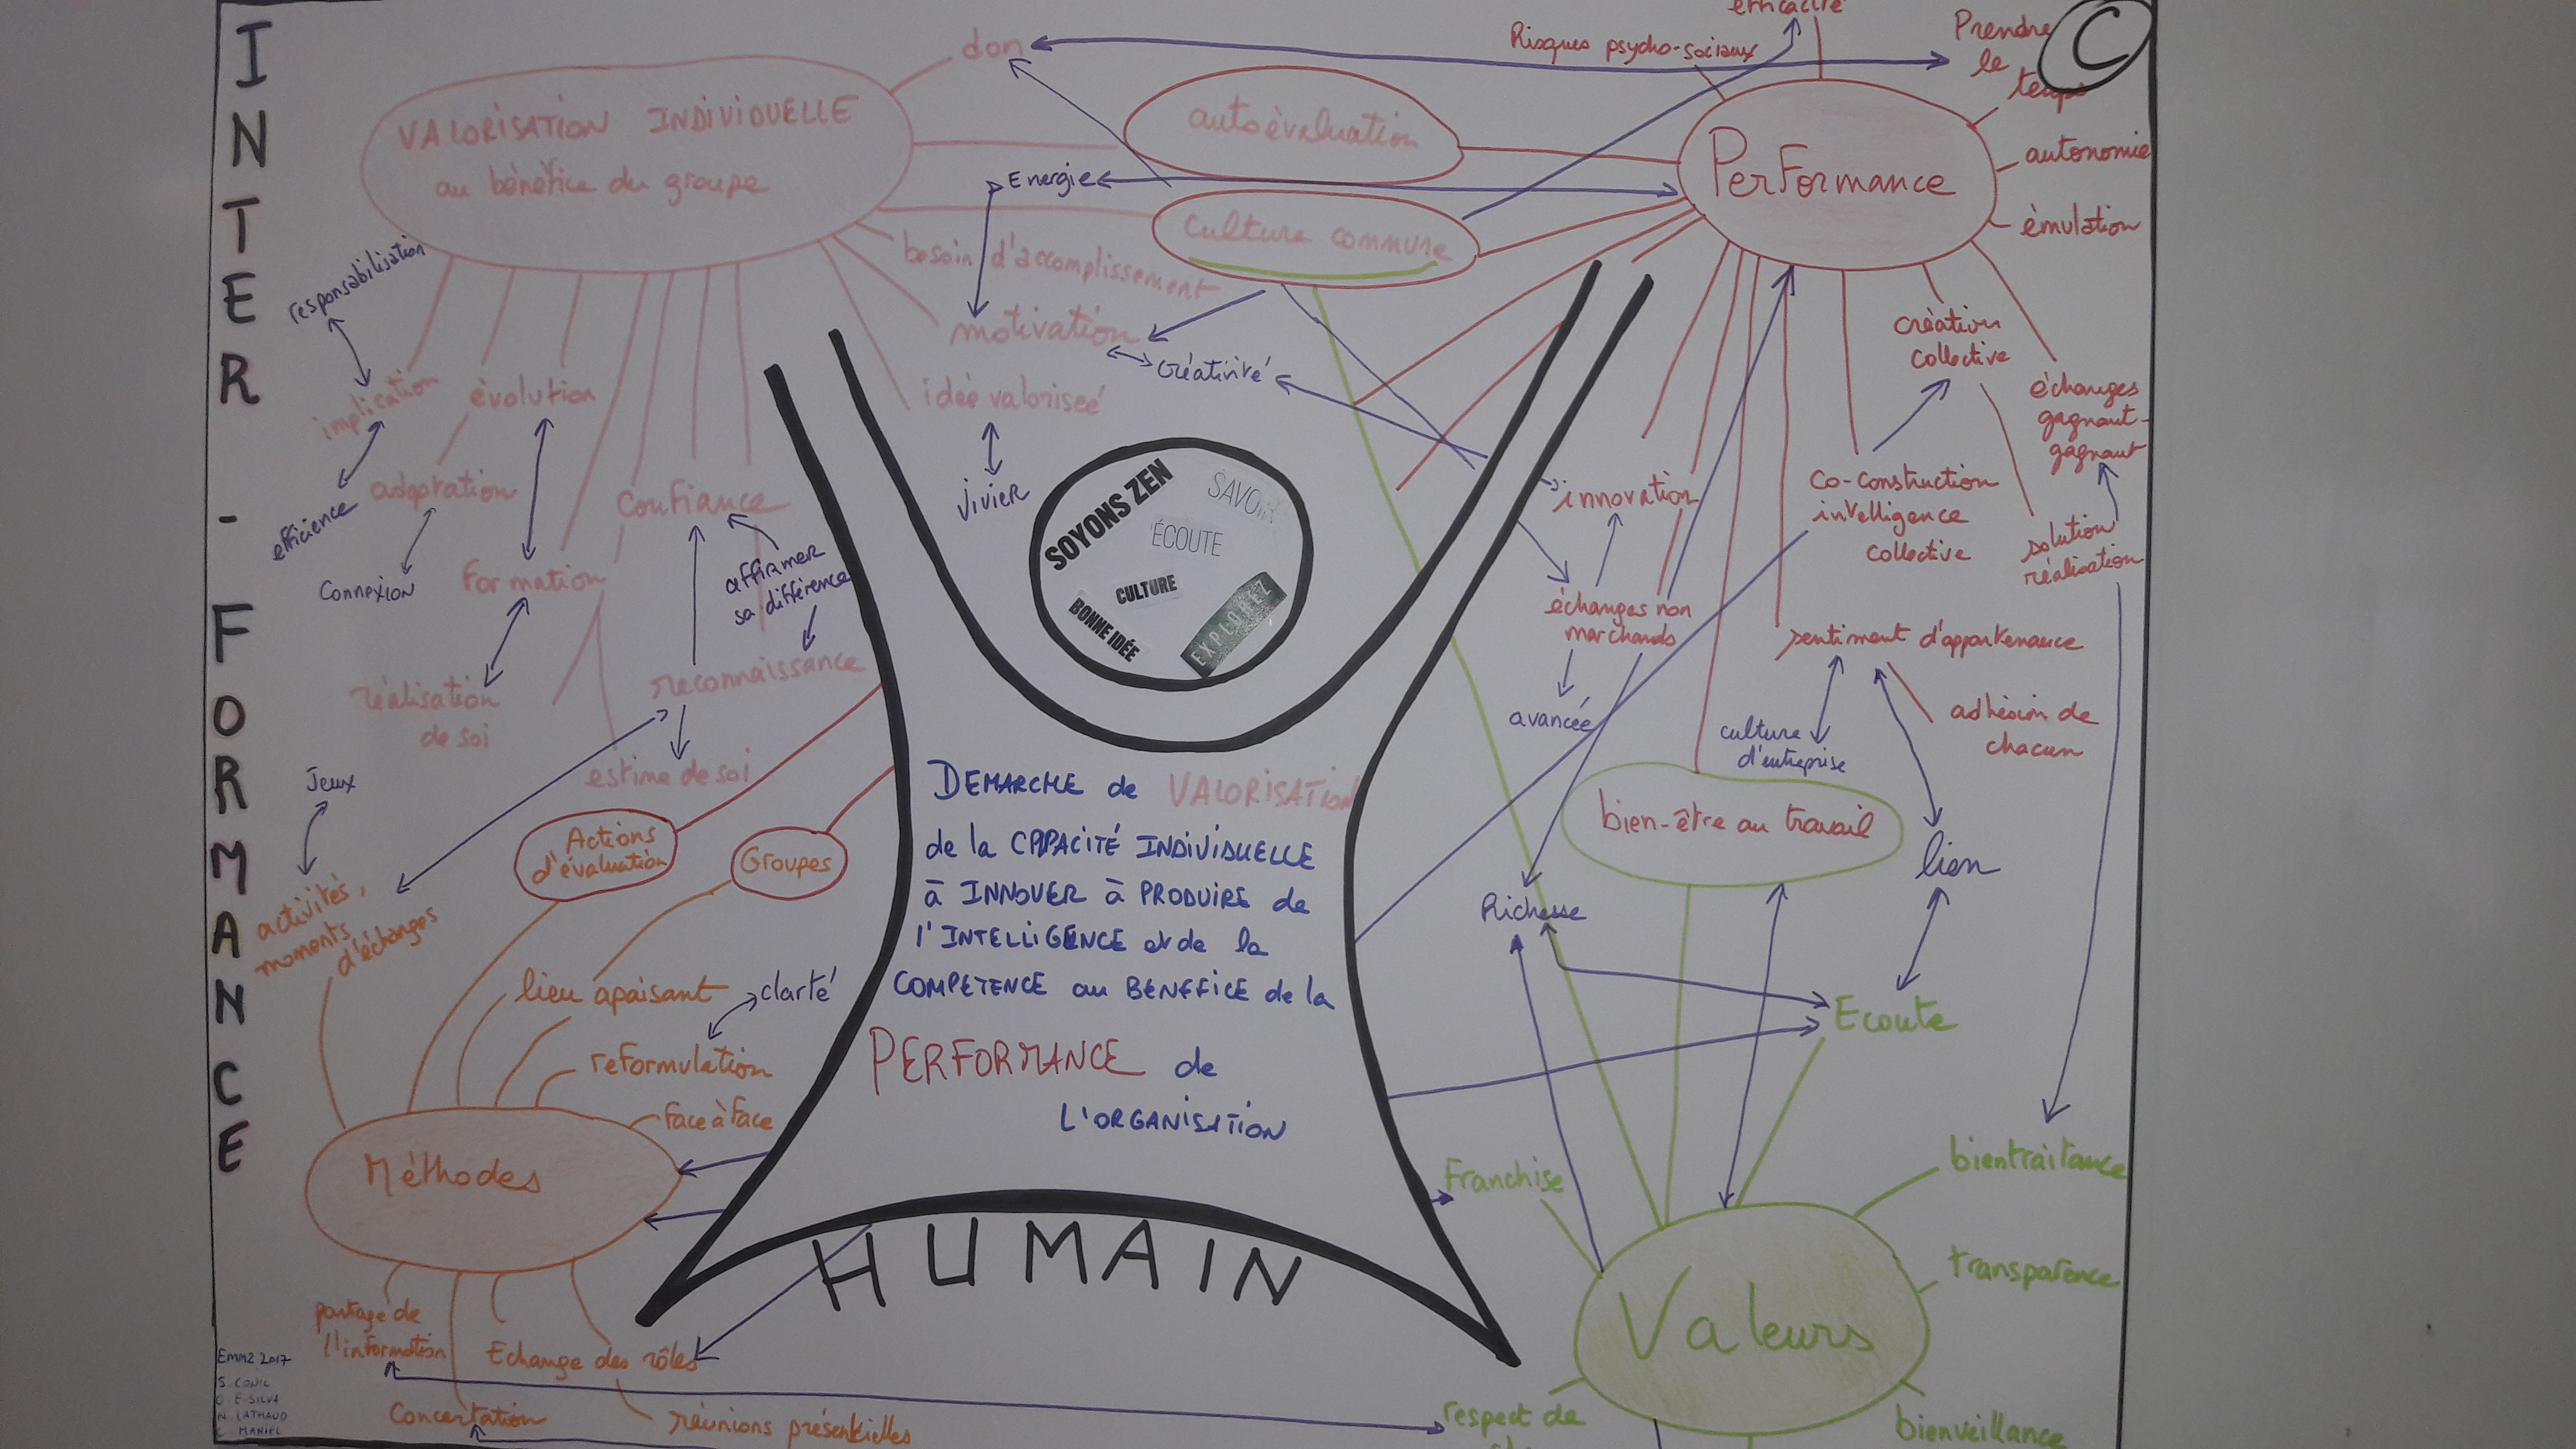 INTER-FORMANCE
C
don
Risques psycho-sociaux
efficacité
Prendre
le
temps
VALORISATION INDIVIDUELLE
au bénéfice du groupe
autoévaluation
PerFormance
autonomie
émulation
Energie
culture commune
responsabilisation
besoin d'accomplissement
motivation
créativité
idée valorisée
vivier
implication
évolution
efficience
adaptation
Connexion
Formation
Confiance
affirmer
sa différence
reconnaissance
réalisation
de soi
estime de soi
SOYONS ZEN
SAVOIR
ÉCOUTE
CULTURE
BONNE IDÉE
EXPLOREZ
création
collective
échanges
gagnant-
gagnant
innovation
co-construction
intelligence
collective
solution
réalisation
échanges non
marchands
avancée
sentiment d'appartenance
adhésion de
chacun
culture
d'entreprise
bien-être au travail
lien
Richesse
Ecoute
Jeux
Actions
d'évaluation
Groupes
activités,
moments
d'échanges
lieu apaisant
clarté
reformulation
Face à Face
Méthodes
DEMARCHE de VALORISATION
de la CAPACITÉ INDIVIDUELLE
à INNOVER à PRODUIRE de
l'INTELLIGENCE et de la
COMPETENCE au BENEFICE de la
PERFORMANCE de
L'ORGANISATION
HUMAIN
Franchise
bientraitance
transparence
Valeurs
respect de
bienveillance
partage de
l'information
Echange des rôles
Concertation
réunions présentielles
EMM2 2017
S. CONIL
O. E. SILVA
N. LATHAUD